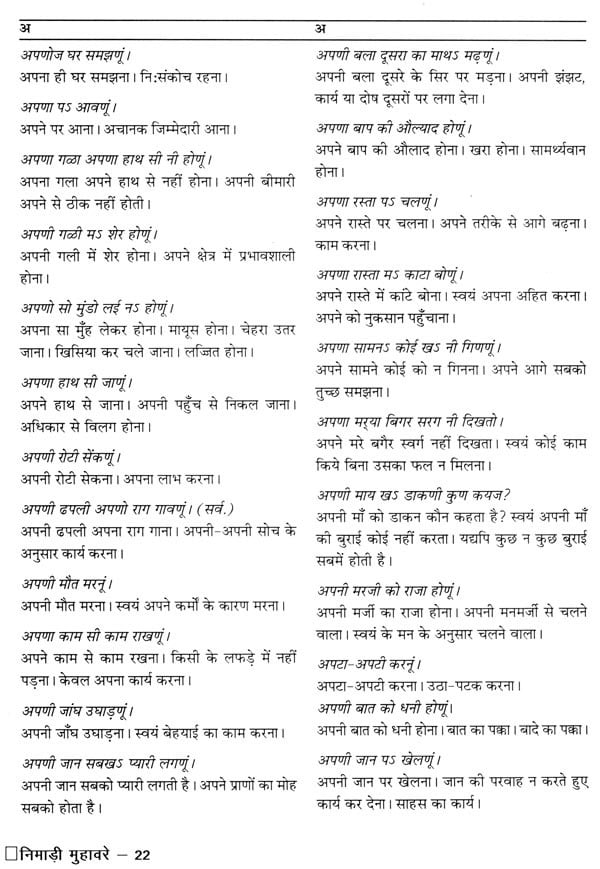 अ
अपणोज घर समझणूं।
अपना ही घर समझना। नि:संकोच रहना।
अपणा पऽ आवणूं।
अपने पर आना। अचानक जिम्मेदारी आना।
अपणा गळा अपणा हाथ सी नी होणूं।
अपना गला अपने हाथ से नहीं होना। अपनी बीमारी
अपने से ठीक नहीं होती।
अपणी गळी मऽ शेर होणूं।
अपनी गली में शेर होना। अपने क्षेत्र में प्रभावशाली
होना।
अपणो सो मुंडो लई नऽ होणूं।
अपना सा मुँह लेकर होना। मायूस होना। चेहरा उतर
जाना। खिसिया कर चले जाना। लज्जित होना।
अपणा हाथ सी जाणूं।
अपने हाथ से जाना। अपनी पहुँच से निकल जाना।
अधिकार से विलग होना।
अपणी रोटी सेंकणूं।
अपनी रोटी सेकना। अपना लाभ करना।
अपणी ढपली अपणो राग गावणूं। (सर्व.)
अपनी ढपली अपना राग गाना। अपनी-अपनी सोच के
अनुसार कार्य करना।
अपणी मौत मरनूं।
अपनी मौत मरना। स्वयं अपने कर्मों के कारण मरना।
अपणा काम सी काम राखणूं।
अपने काम से काम रखना। किसी के लफड़े में नहीं
पड़ना। केवल अपना कार्य करना।
अपणी जांघ उघाड़णूं।
अपनी जाँघ उघाड़ना। स्वयं बेहयाई का काम करना।
अपणी जान सबखऽ प्यारी लगणूं।
अपनी जान सबको प्यारी लगती है। अपने प्राणों का मोह
सबको होता है।
अ
अपणी बला दूसरा का माथऽ मढ़णूं।
अपनी बला दूसरे के सिर पर मड़ना। अपनी झंझट,
कार्य या दोष दूसरों पर लगा देना।
अपणा बाप की औल्याद होणूं।
अपने बाप की औलाद होना। खरा होना। सामर्थ्यवान
होना।
अपणा रस्ता पऽ चलणूं।
अपने रास्ते पर चलना। अपने तरीके से आगे बढ़ना।
काम करना।
अपणा रास्ता मऽ काटा बोणूं।
अपने रास्ते में कांटे बोना। स्वयं अपना अहित करना।
अपने को नुकसान पहुँचाना।
अपणा सामनऽ कोई खऽ नी गिणणूं।
अपने सामने कोई को न गिनना। अपने आगे सबको
तुच्छ समझना।
अपणा मर्‌या बिगर सरग नी दिखतो।
अपने मरे बगैर स्वर्ग नहीं दिखता। स्वयं कोई काम
किये बिना उसका फल न मिलना।
अपणी माय खऽ डाकणी कुण कयज?
अपनी माँ को डाकन कौन कहता है? स्वयं अपनी माँ
की बुराई कोई नहीं करता। यद्यपि कुछ न कुछ बुराई
सबमें होती है।
अपनी मरजी को राजा होणूं।
अपनी मर्जी का राजा होना। अपनी मनमर्जी से चलने
वाला। स्वयं के मन के अनुसार चलने वाला।
अपटा-अपटी करनूं।
अपटा-अपटी करना। उठा-पटक करना।
अपणी बात को धनी होणूं।
अपनी बात को धनी होना। बात का पक्का। बादे का पक्का।
अपणी जान पऽ खेलणूं।
अपनी जान पर खेलना। जान की परवाह न करते हुए
कार्य कर देना। साहस का कार्य।
□निमाड़ी मुहावरे – 22